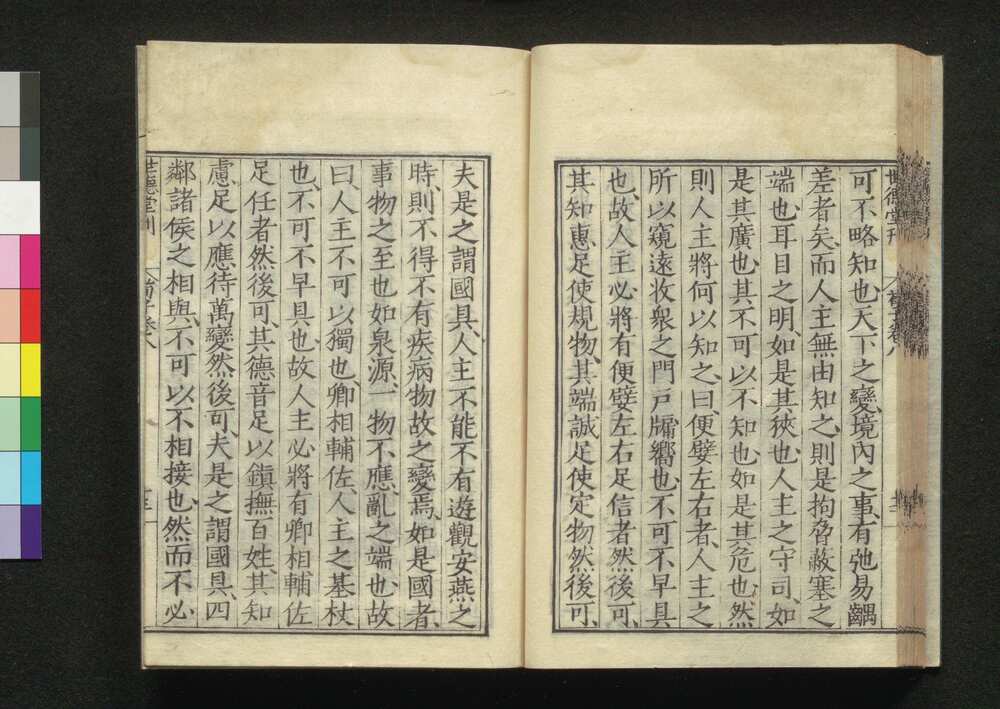 世德堂刊
荀子卷八
可不略知也、天下之變、境內之事、有弛易齵
差者矣、而人主無由知之、則是拘脅蔽塞之
端也、耳目之明、如是其狹也、人主之守司、如
是其廣也、其不可以不知也、如是其危也、然
則人主將何以知之、曰、便嬖左右者、人主之
所以窺遠收眾之門戶牖嚮也、不可不早具
也、故人主必將有便嬖左右足信者然後可、
其知惠足使規物、其端誠足使定物然後可、
夫是之謂國具、人主不能不有遊觀安燕之
時、則不得不有疾病物故之變焉、如是國者、
事物之至也如泉源、一物不應、亂之端也、故
曰、人主不可以獨也、卿相輔佐、人主之基杖
也、不可不早具也、故人主必將有卿相輔佐
足任者然後可、其德音足以鎮撫百姓、其知
慮足以應待萬變然後可、夫是之謂國具、四
鄰諸侯之相與、不可以不相接也、然而不必
世德堂刊
荀子卷八